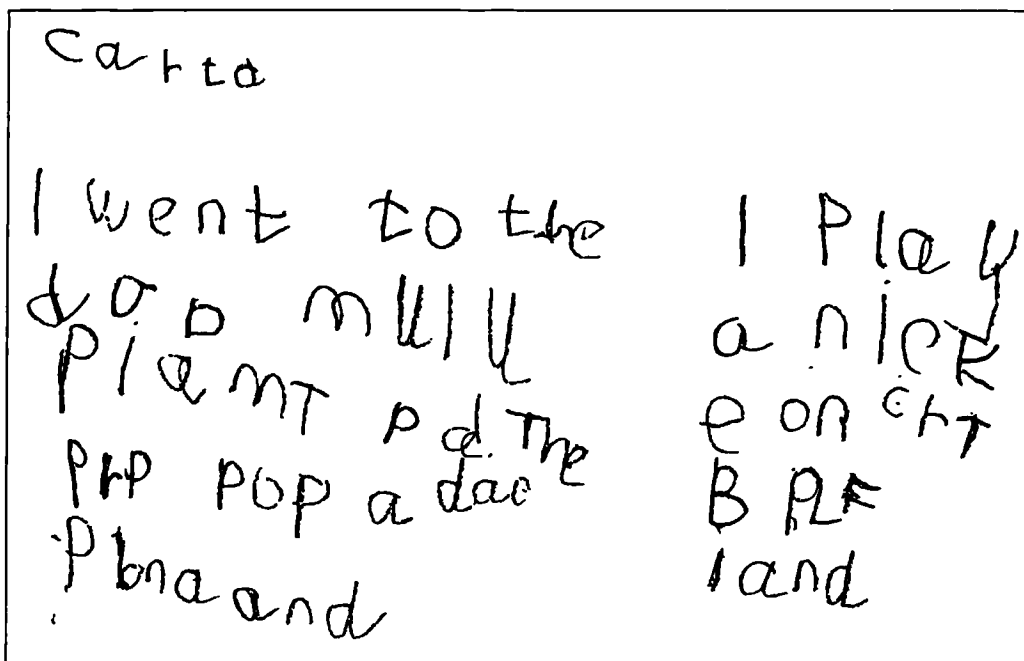 carta
I went to the
doo mully
Plant pd. The
PrP POP a dao
Pbna and
I Play
a nick
e on crt
B PLE
land